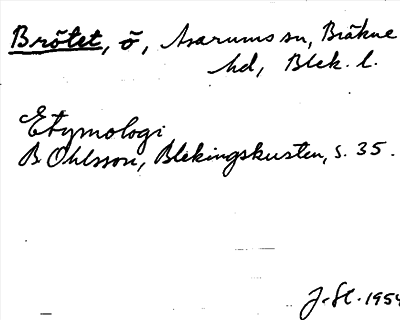 Brötet, ö, Asarums sn, Bräkne
hd, Blek. l.
Etymologi
B. Ohlsson, Blekingskusten, s. 35.
J. Sl. 1954